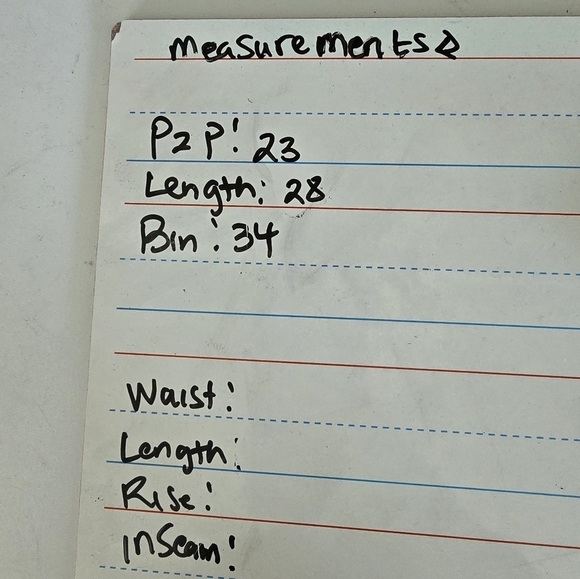 Measurements
P2P: 23
Length: 28
Bin: 34
Waist:
Length:
Rise:
Inseam: